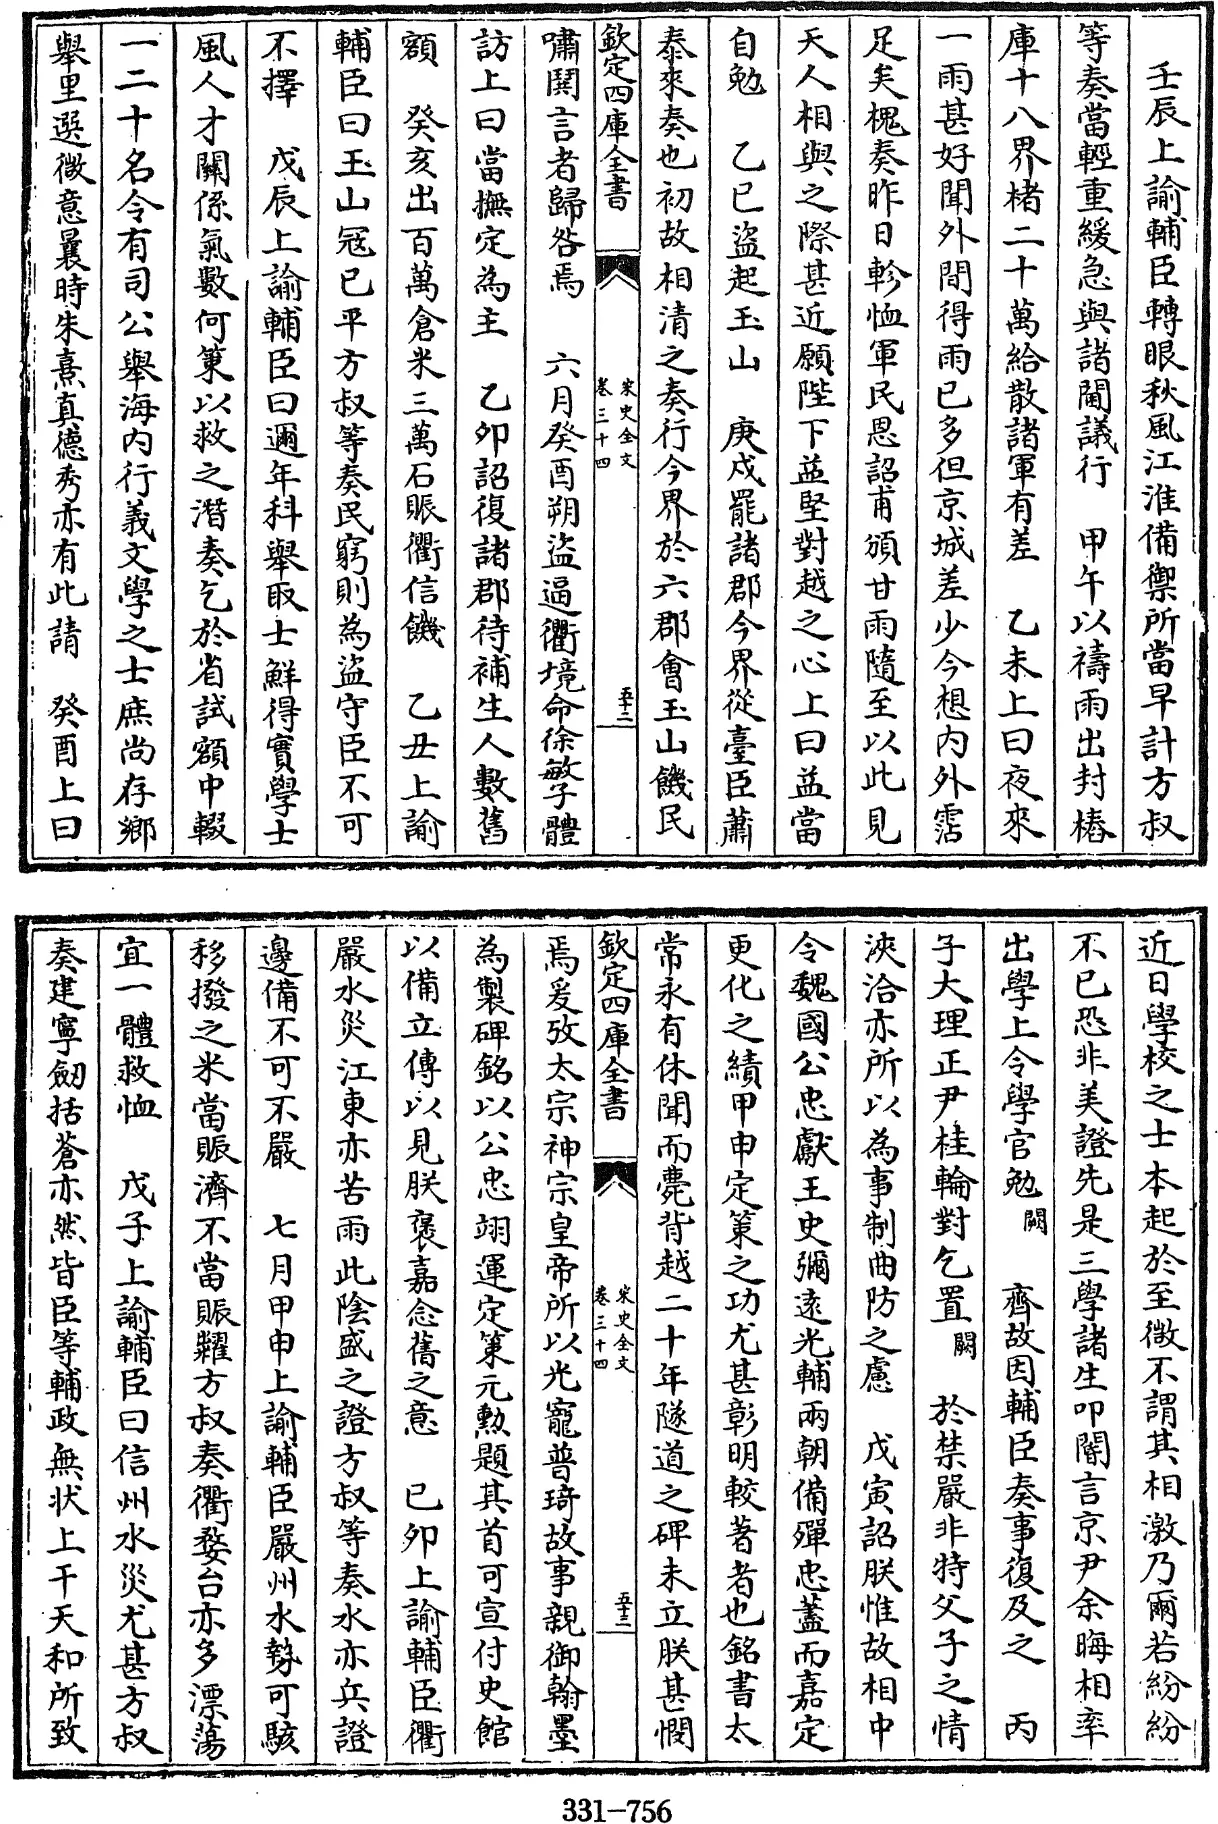 壬辰上諭輔臣轉眼秋風江淮備禦所當早計方叔
等奏當輕重緩急與諸閫議行　甲午以禱雨出封樁
庫十八界楮二十萬給散諸軍有差　乙未上曰夜來
一雨甚好聞外間得雨已多但京城差少今想内外霑
足矣槐奏昨日軫恤軍民恩詔甫頒甘雨隨至以此見
天人相與之際甚近願陛下益堅對越之心上曰益當
自勉　乙巳盜起玉山　庚戌罷諸郡今界從臺臣蕭
泰來奏也初故相清之奏行今界於六郡會玉山饑民
欽定四庫全書
宋史全文
卷三十四
五十二
嘯鬨言者歸咎焉　六月癸酉朔盜逼衢境命徐敏子體
訪上曰當撫定為主　乙卯詔復諸郡待補生人數舊
額　癸亥出百萬倉米三萬石賬衢信饑　乙丑上諭
輔臣曰玉山冦已平方叔等奏民窮則為盜守臣不可
不擇　戊辰上諭輔臣曰邇年科舉取士鮮得實學士
風人才關係氣數何策以救之潛奏乞於省試額中輟
一二十名令有司公舉海内行義文學之士庶尚存鄉
舉里選微意曩時朱熹真德秀亦有此請　癸酉上曰
近日學校之士本起於至微不謂其相激乃爾若紛紛
不已恐非美證先是三學諸生叩閽言京尹余晦相率
出學上令學官勉闕　齊故因輔臣奏事復及之　丙
子大理正尹桂輪對乞置闕　於禁嚴非特父子之情
浹洽亦所以為事制曲防之慮　戊寅詔朕惟故相中
令魏國公忠獻王史彌遠光輔兩朝備殫忠藎而嘉定
更化之績甲申定策之功尤甚彰明較著者也銘書太
常永有休聞而薨背越二十年隧道之碑未立朕甚憫
欽定四庫全書
宋史全文
卷三十四
五十三
焉爰攷太宗神宗皇帝所以光寵普琦故事親御翰墨
為製碑銘以公忠翊運定策元勲題其首可宣付史館
以備立傳以見朕褒嘉念舊之意　己卯上諭輔臣衢
嚴水災江東亦苦雨此陰盛之證方叔等奏水亦兵證
邊備不可不嚴　七月甲申上諭輔臣嚴州水勢可駭
移撥之米當賑濟不當賑糶方叔奏衢婺台亦多漂蕩
宜一體救恤　戊子上諭輔臣曰信州水災尤甚方叔
奏建寧劒括蒼亦然皆臣等輔政無状上干天和所致
331-756